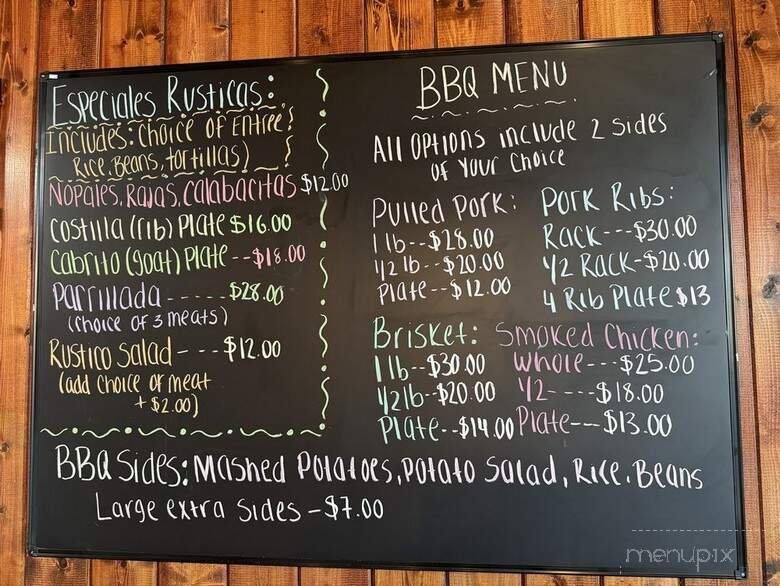 Especiales Rusticas:
Includes: Choice of Entree,
Rice, Beans, tortillas)
Nopales, Rajas, Calabacitas $12.00
Costilla (rib) Plate $16.00
Cabrito (goat) Plate --$18.00
Parrillada ------$28.00
(choice of 3 meats)
Rustico Salad ---$12.00
(add choice of meat
+ $2.00)
BBQ MENU
All Options include 2 sides
of Your Choice
Pulled Pork:
1 lb--$28.00
1/2 lb--$20.00
Plate--$12.00
Pork Ribs:
Rack---$30.00
1/2 Rack-$20.00
4 Rib Plate $13
Brisket:
1 lb--$30.00
1/2 lb--$20.00
Plate--$14.00
Smoked Chicken:
Whole---$25.00
1/2----$18.00
Plate---$13.00
BBQ Sides: Mashed Potatoes, Potato Salad, Rice, Beans
Large extra sides -$7.00
menupix